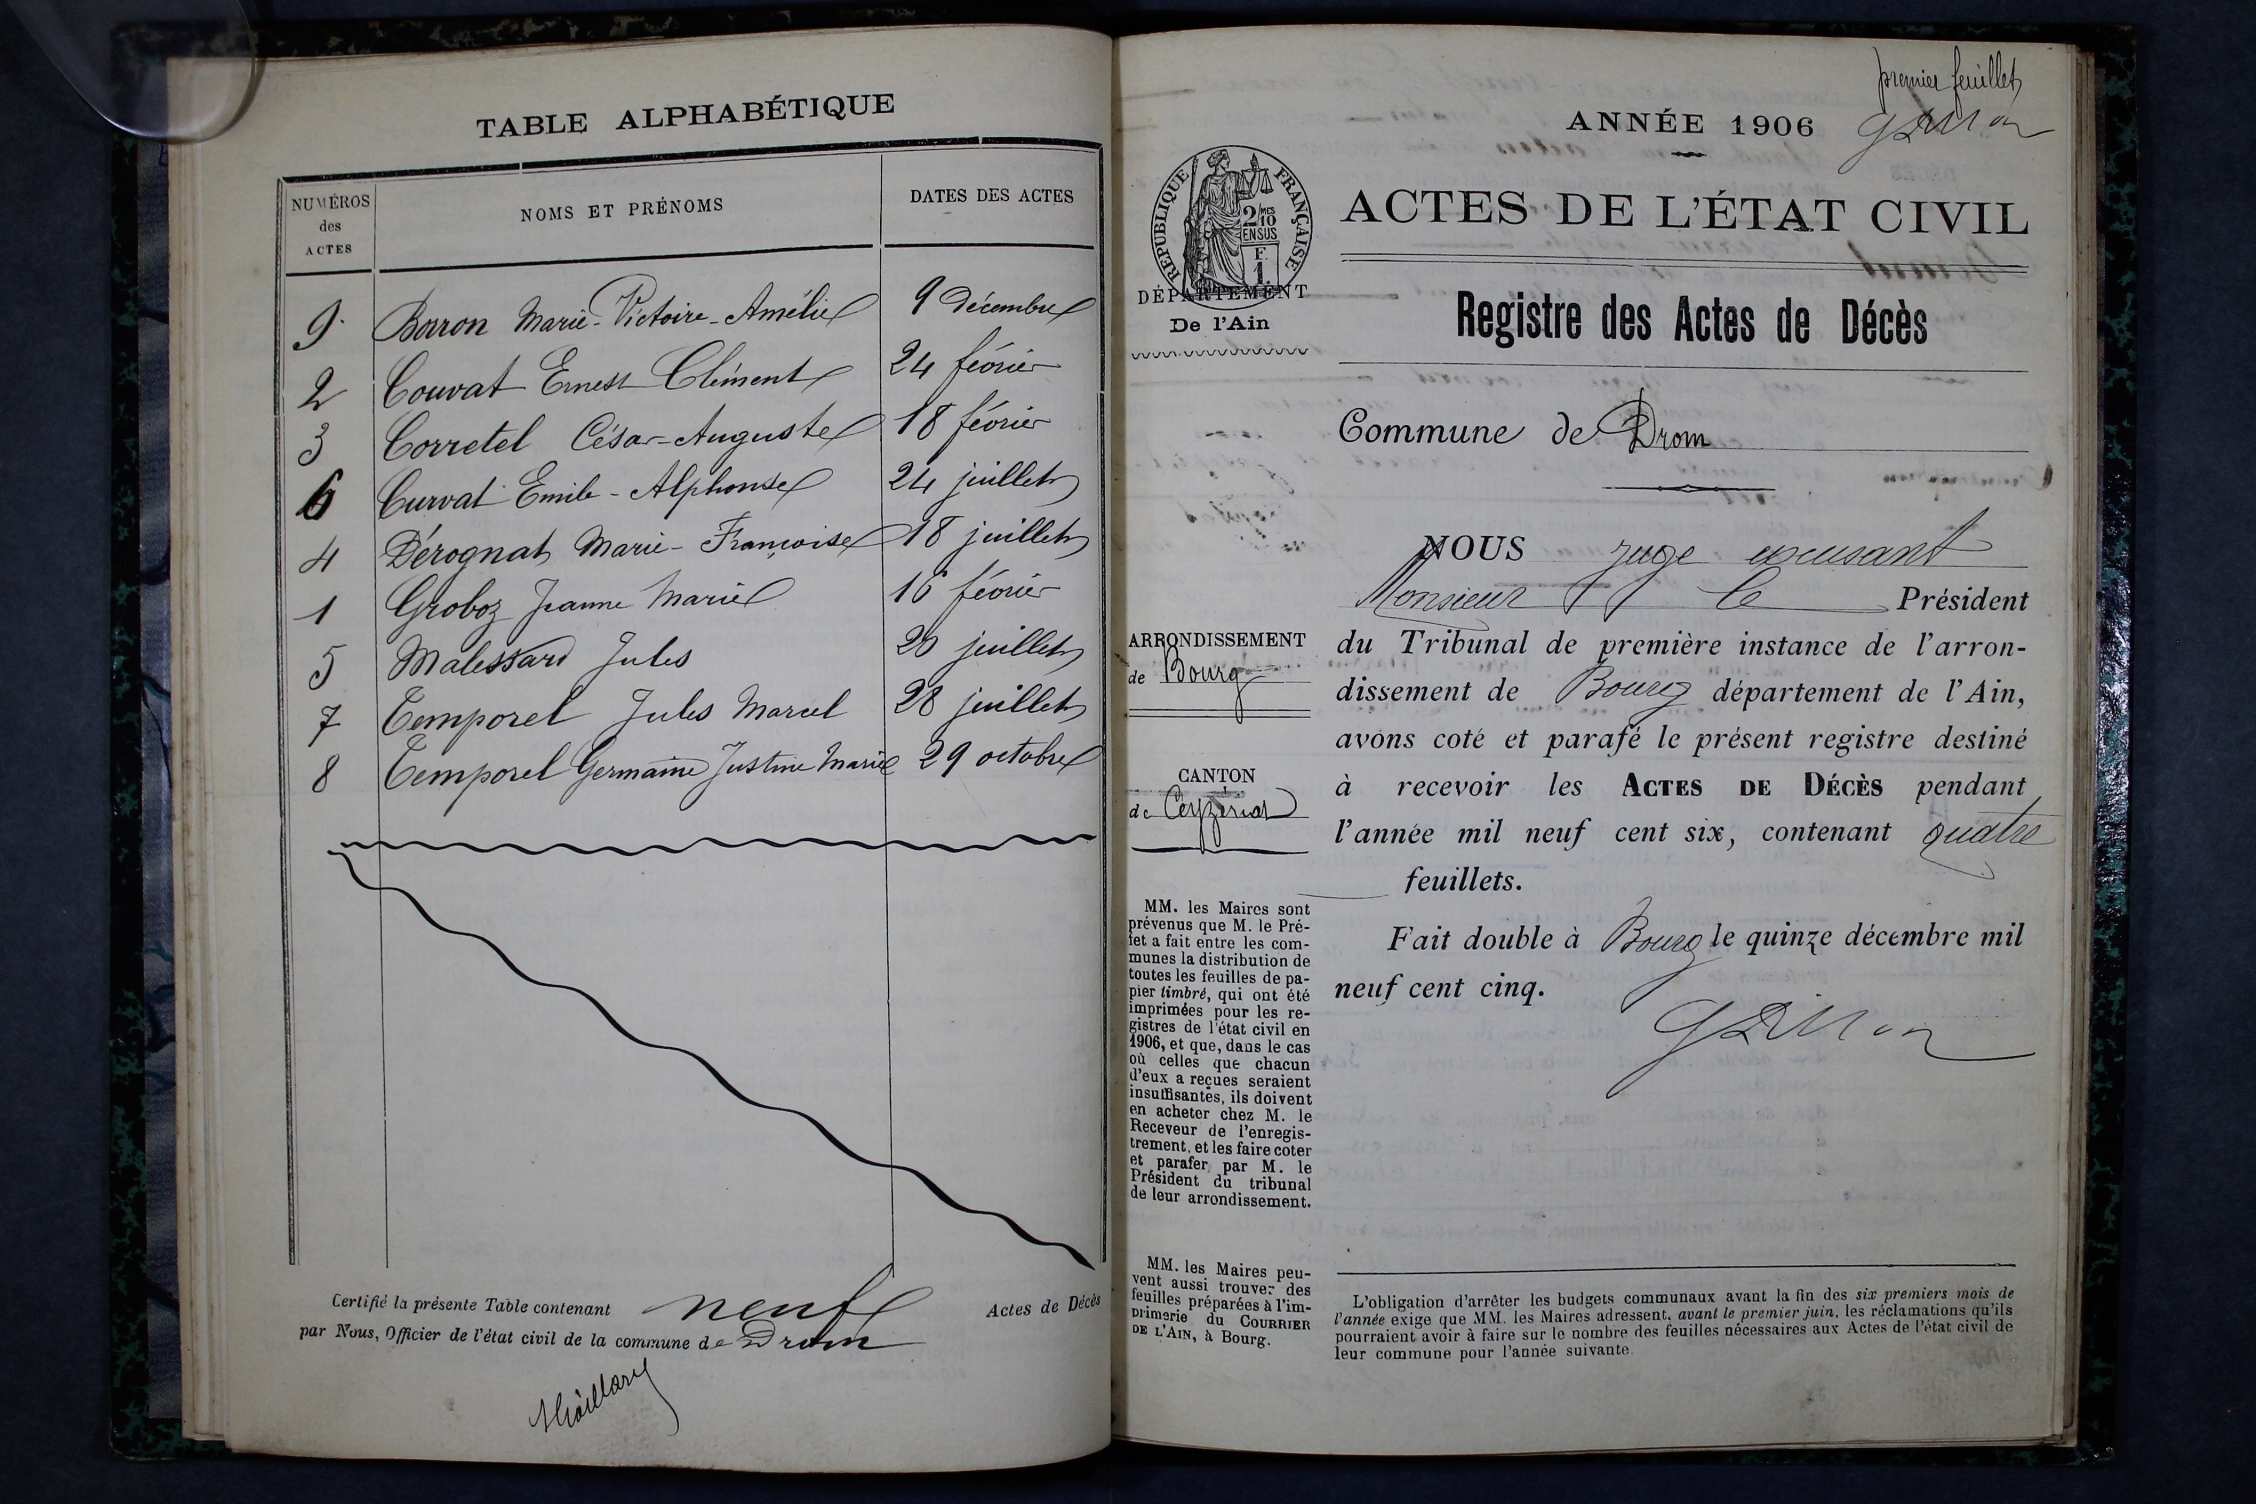 TABLE ALPHABÉTIQUE
NUMÉROS des ACTES NOMS ET PRÉNOMS DATES DES ACTES
9 Barron Marie-Victoire-Amélie 9 décembre
2 Couvat Ernest Clément 24 février
3 Corretel César-Auguste 18 février
6 Curvat Emile-Alphonse 24 juillet
4 Dérognat Marie-Françoise 18 juillet
1 Groboz Jeanne Marie 16 février
5 Malessard Jules 20 juillet
7 Temporel Jules Marcel 28 juillet
8 Temporel Germaine Justine Marie 29 octobre
Certifié la présente Table contenant neuf Actes de Décès
par Nous, Officier de l'état civil de la commune de Drom
premier feuillet
ANNÉE 1906
RÉPUBLIQUE FRANÇAISE
2/10 MES
EN SUS
F.
1.
DÉPARTEMENT
De l'Ain
ACTES DE L'ÉTAT CIVIL
Registre des Actes de Décès
Commune de Drom
ARRONDISSEMENT
de Bourg
CANTON
de Ceyzériat
MM. les Maires sont
prévenus que M. le Pré-
fet a fait entre les com-
munes la distribution de
toutes les feuilles de pa-
pier timbré, qui ont été
imprimées pour les re-
gistres de l'état civil en
1906, et que, dans le cas
où celles que chacun
d'eux a reçues seraient
insuffisantes, ils doivent
en acheter chez M. le
Receveur de l'enregis-
trement, et les faire coter
et parafer par M. le
Président du tribunal
de leur arrondissement.
MM. les Maires peu-
vent aussi trouver des
feuilles préparées à l'im-
primerie du COURRIER
DE L'AIN, à Bourg.
NOUS juge excusant
Monsieur le Président
du Tribunal de première instance de l'arron-
dissement de Bourg département de l'Ain,
avons coté et parafé le présent registre destiné
à recevoir les ACTES DE DÉCÈS pendant
l'année mil neuf cent six, contenant quatre
feuillets.
Fait double à Bourg le quinze décembre mil
neuf cent cinq.
L'obligation d'arrêter les budgets communaux avant la fin des six premiers mois de
l'année exige que MM. les Maires adressent, avant le premier juin, les réclamations qu'ils
pourraient avoir à faire sur le nombre des feuilles nécessaires aux Actes de l'état civil de
leur commune pour l'année suivante.